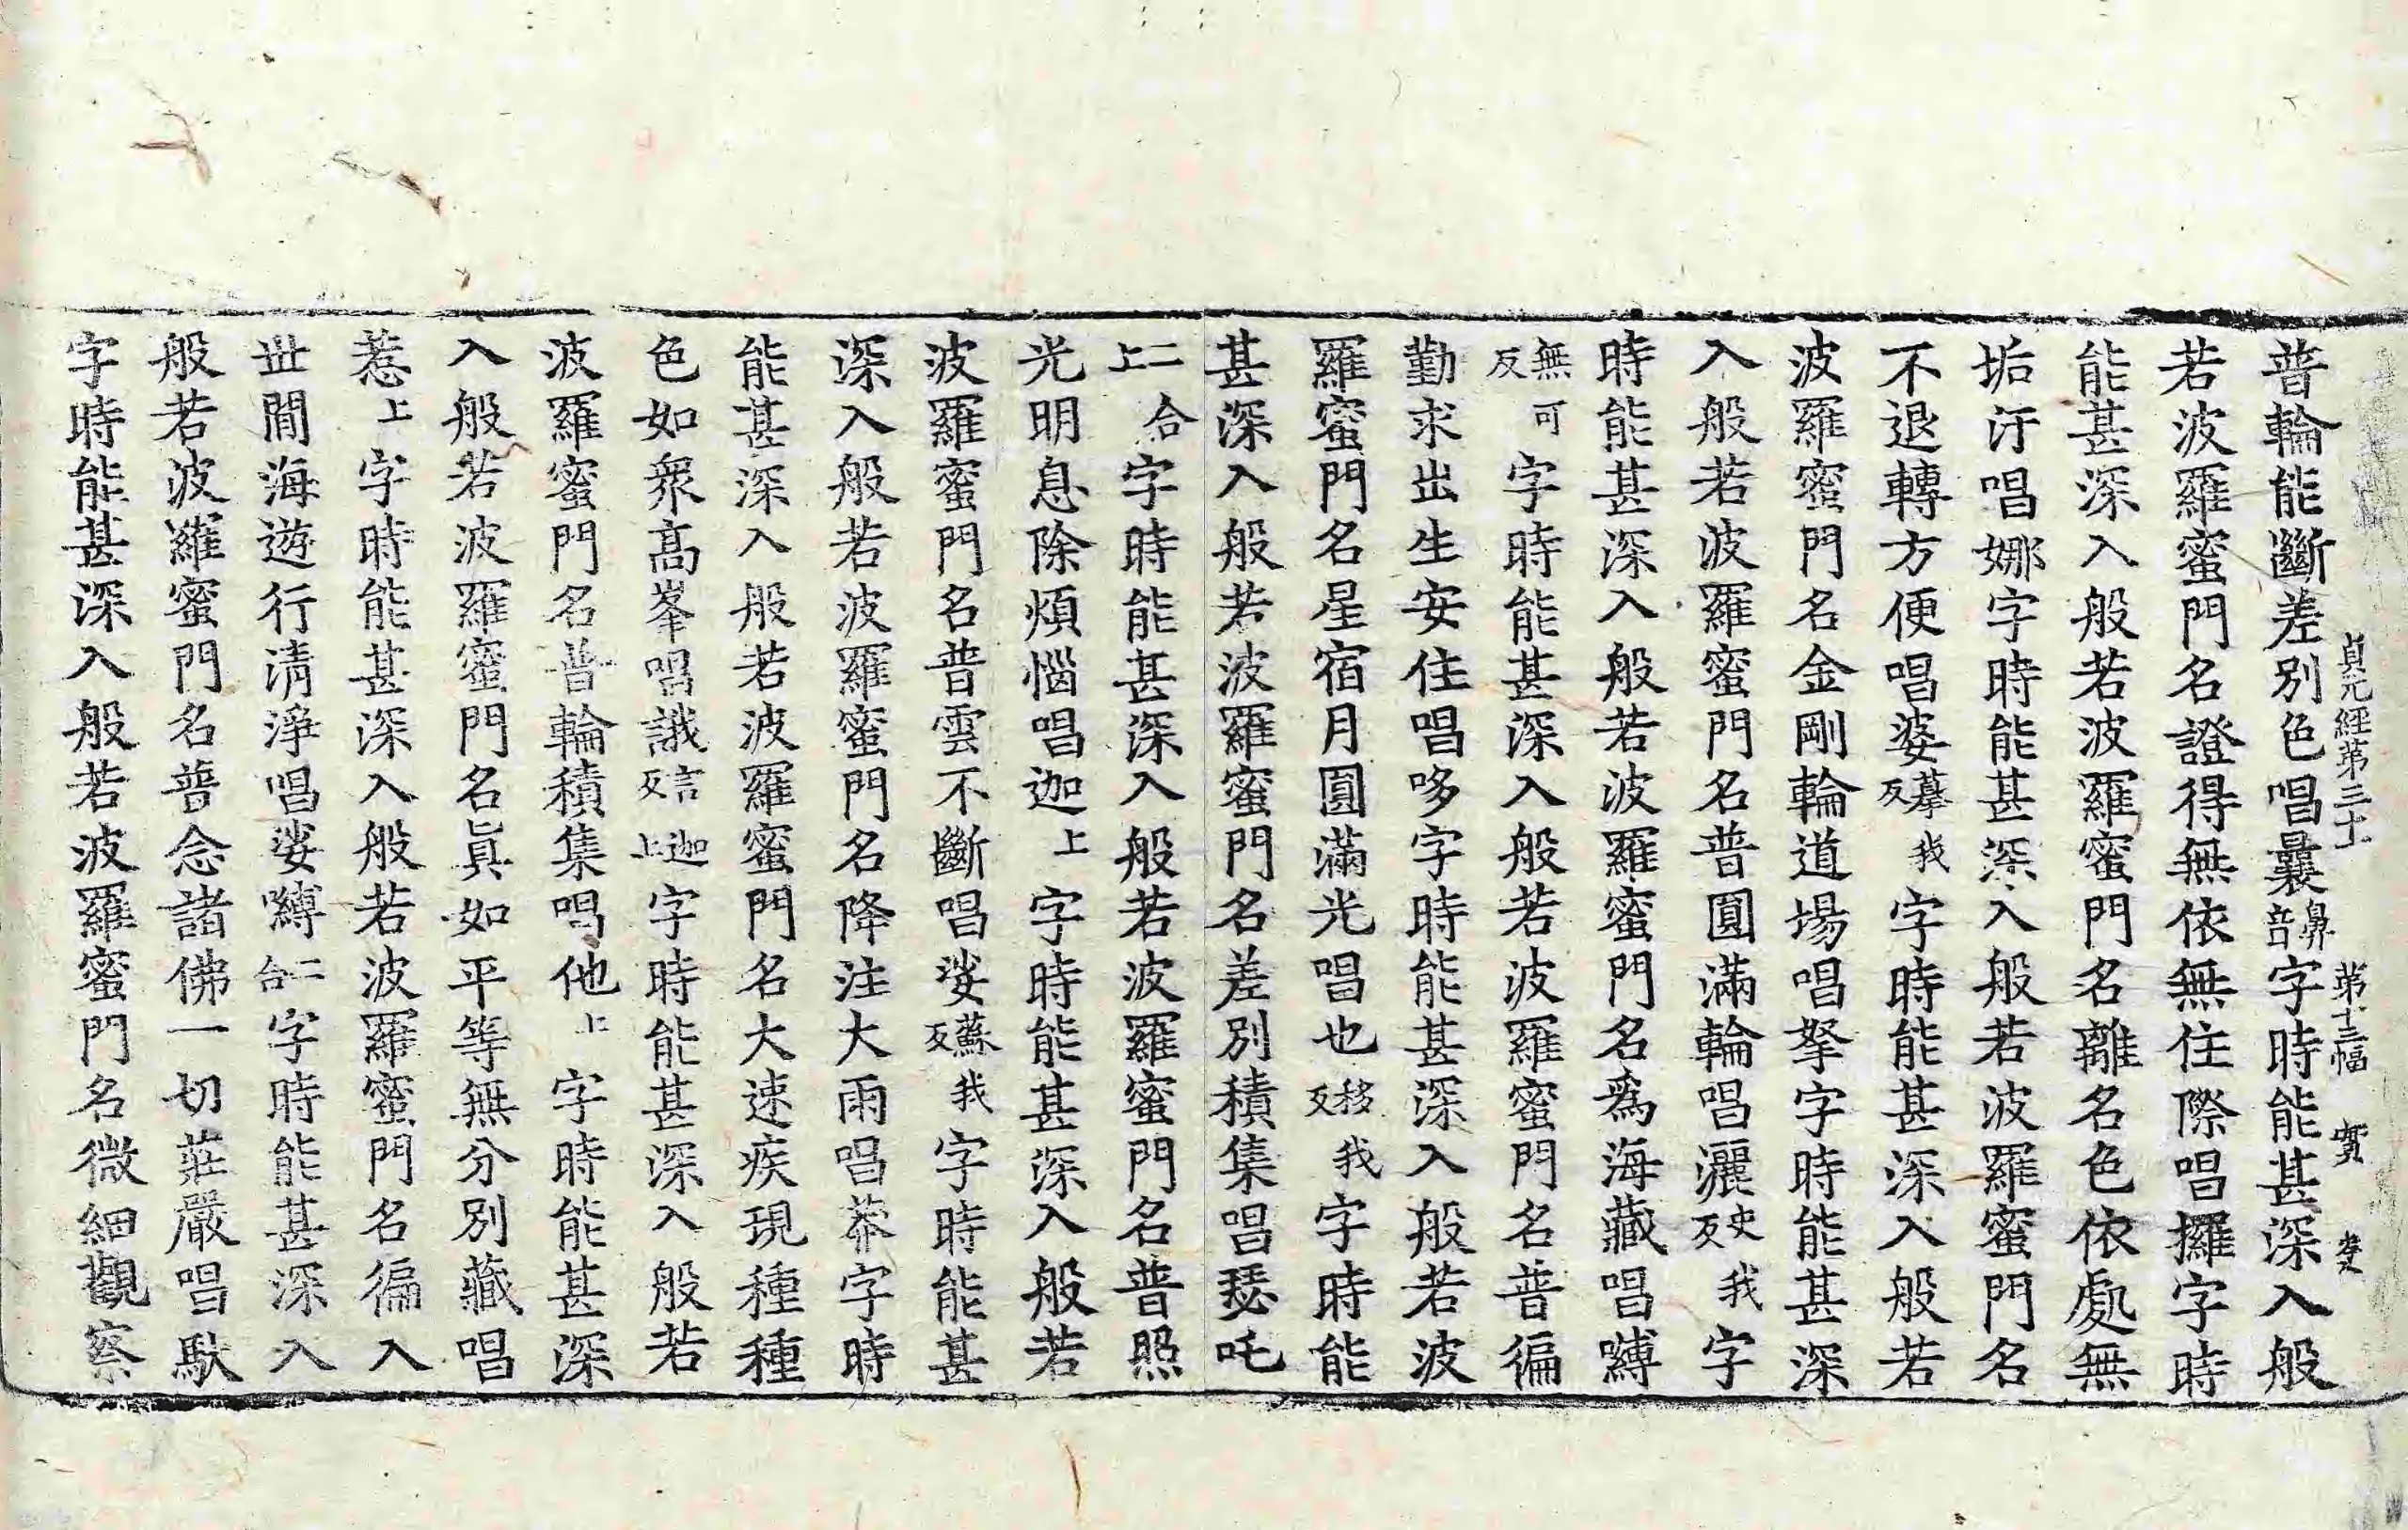 貞元經第三十 第十三幅 實
普輪能斷差別色唱曩鼻音字時能甚深入般
若波羅蜜門名證得無依無住際唱攞字時
能甚深入般若波羅蜜門名離名色依處無
垢汙唱娜字時能甚深入般若波羅蜜門名
不退轉方便唱婆摹我反字時能甚深入般若
波羅蜜門名金剛輪道場唱拏字時能甚深
入般若波羅蜜門名普圓滿輪唱灑史我反字
時能甚深入般若波羅蜜門名爲海藏唱嚩
無可反字時能甚深入般若波羅蜜門名普徧
勤求出生安住唱哆字時能甚深入般若波
羅蜜門名星宿月圓滿光唱也移我反字時能
甚深入般若波羅蜜門名差別積集唱瑟吒
二合上字時能甚深入般若波羅蜜門名普照
光明息除煩惱唱迦上字時能甚深入般若
波羅蜜門名普雲不斷唱娑蘇我反字時能甚
深入般若波羅蜜門名降注大雨唱莽字時
能甚深入般若波羅蜜門名大速疾現種種
色如衆高峯唱誐言迦反上字時能甚深入般若
波羅蜜門名普輪積集唱他上字時能甚深
入般若波羅蜜門名眞如平等無分別藏唱
惹上字時能甚深入般若波羅蜜門名徧入
世間海遊行清淨唱娑嚩二合字時能甚深入
般若波羅蜜門名普念諸佛一切莊嚴唱馱
字時能甚深入般若波羅蜜門名微細觀察